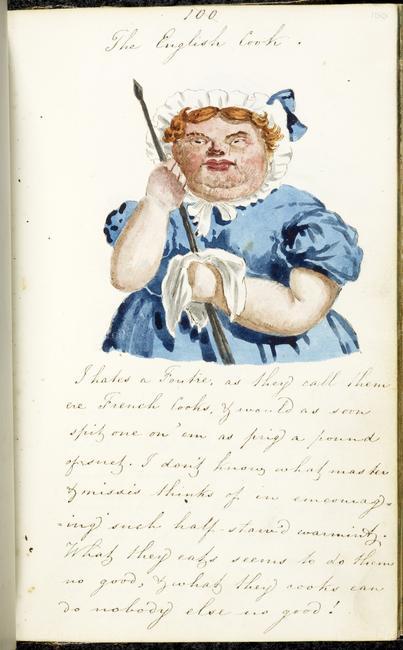 100
100
The English Cook.
I hates a Foutre, as they call them
ere French Cooks, & would as soon
spit one on 'em as prig a pound
of suet. I don't know what master
& missis thinks of in emcourag-
-ing such half-starv'd warmint.
What they eats seems to do them
no good, & what they cooks can
do nobody else no good!